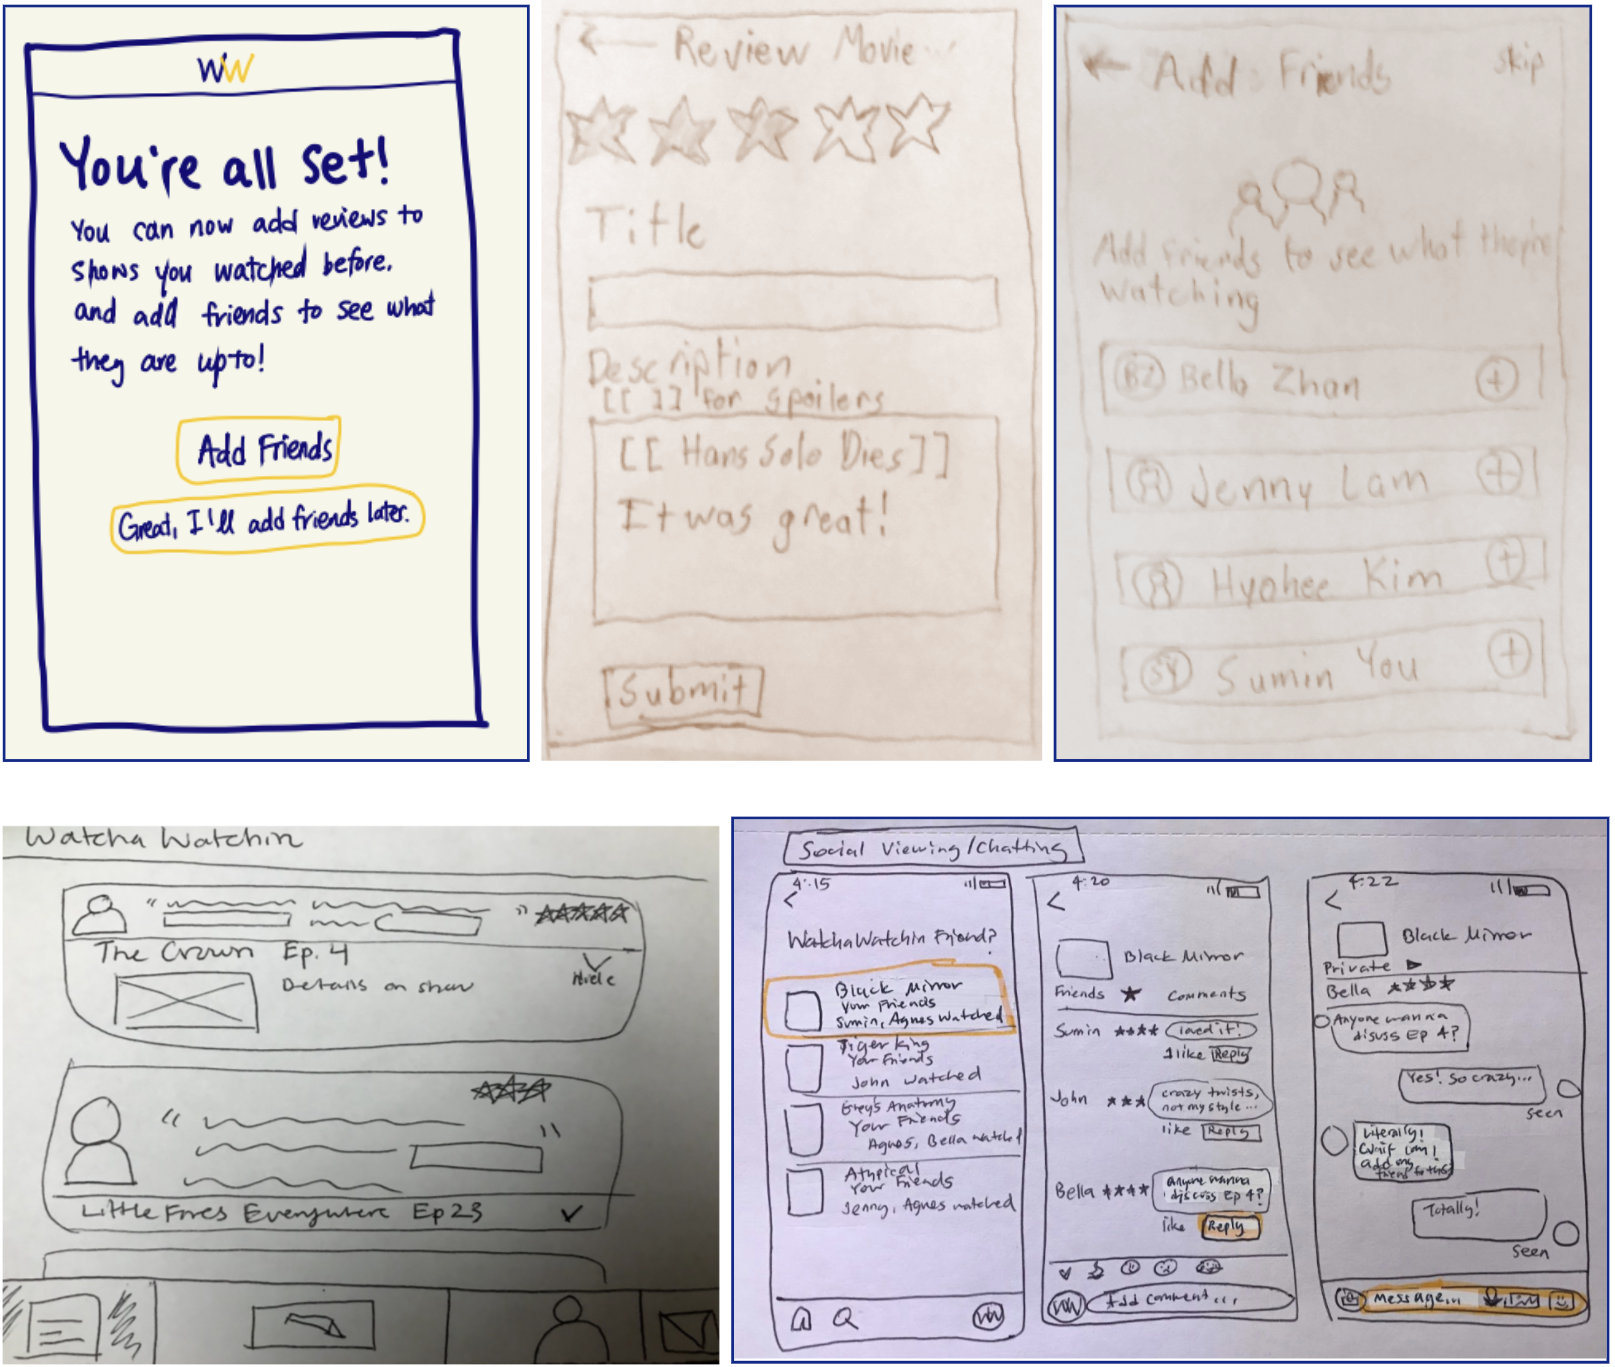 WW
You're all set!
You can now add reviews to
shows you watched before.
and add friends to see what
they are up to!
Add Friends
Great, I'll add friends later.
Review Movie
Title
Description
[[ ]] for spoilers
[[ Hans Solo Dies]]
It was great!
Submit
Add Friends
skip
Add friends to see what they're
watching
BZ Bella Zhan +
Jenny Lam +
Hyohee Kim +
SY Sumin You +
Watcha Watchin
" "
The Crown Ep. 4
Details on show
Hide
" "
Little Fires Everywhere Ep 23
Social Viewing/Chatting
4:15
<
WatchaWatchin Friend?
Black Mirror
Your Friends
Sumin, Agnes watched
Tiger King
Your Friends
John watched
Grey's Anatomy
Your Friends
Agnes, Bella watched
Atypical
Your Friends
Jenny, Agnes watched
WW
4:20
<
Black Mirror
Friends ★ Comments
Sumin ★★★★ loved it!
1 like Reply
John ★★★ crazy twists,
not my style...
like Reply
Bella ★★★★ anyone wanna
discuss Ep 4?
like Reply
WW Add comment...
4:22
<
Black Mirror
Private
Bella ★★★★
Anyone wanna
disuss Ep 4?
Yes! so crazy...
seen
Literally!
add my
friend to this
Totally!
seen
Message...